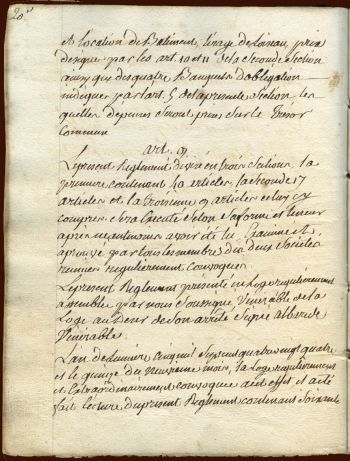 20.
et location de Batiment, tirage de loixau, prix
designé par les art. 10 et 11 de la Seconde Section
ainsy que des quatre Banquets d'obligation
indiqués par l'art. 5 de la presente Section, les
quelles depences seront prises sur le Tresor
Commun
art. 9
Le present Reglement divisé en trois Sections, la
premiere contenant 40 articles, la Seconde 17
articles et la troisieme 9 articles celuy cy
compris sera Executé selon sa forme et teneur
après neantmoins avoir été lu, Examiné et
aprouvé par tous les membres des deux Societés
reunies regulierement convoquées.
Le present Reglement presenté en Loge regulierement
assemblée par nous soussigné, Venerable de la
Loge au desir de son arrêté Signé
Venerable.
L'an de Lumiere cinq mil Sept cent quatre vingt quatre
et le quinze du neuvieme mois, la Loge regulierement
et Extraordinairement convoquée a cet effet il a été
fait lecture du present Reglement contenant Soixante